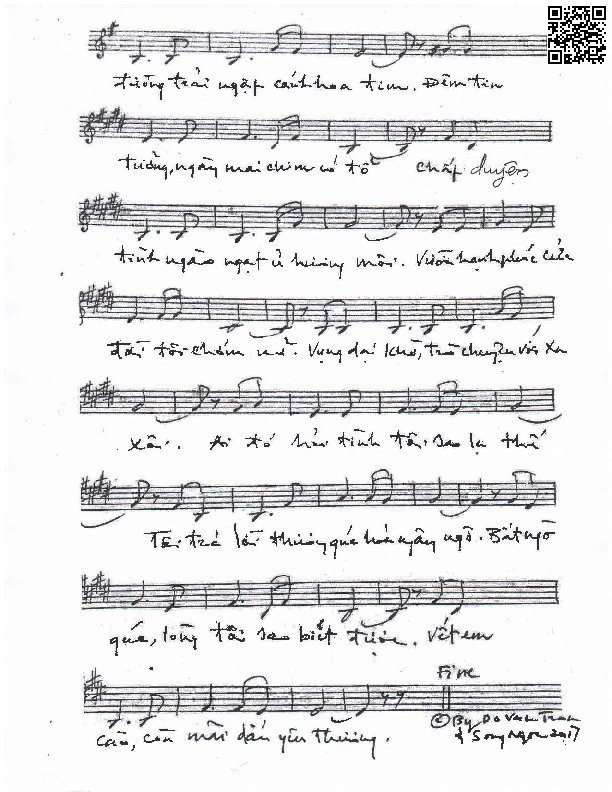 đường trải ngập cánh hoa tim. Đêm tin
tưởng, ngày mai chim có tổ chắp duyên
tình ngào ngạt ủ hương môi. Vườn hạnh phúc cửa
đời tôi chớm nở. Vụng dại khờ, trò chuyện với xa
xôi. Ai đó hỏi tình tôi sao lạ thế
Tôi trả lời thương quá hóa ngây ngô. Bất ngờ
quá, lòng tôi sao biết được. Vết em
cào, còn mãi dấu yêu thương.
Fine
© By Do Van Tran
& Song Ngoc 2017